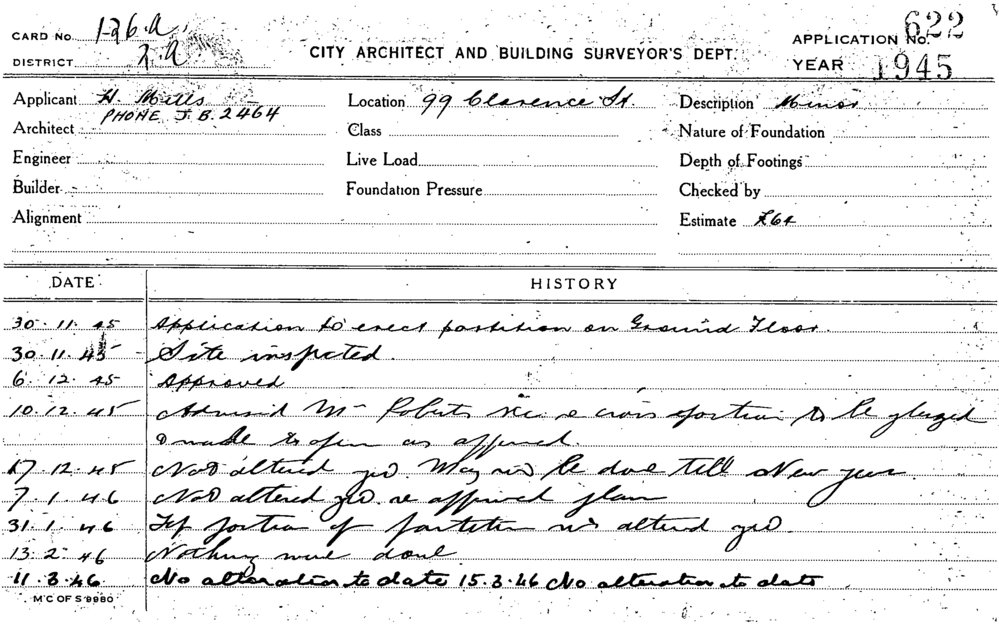 CARD No. 126.A
DISTRICT 2A
CITY ARCHITECT AND BUILDING SURVEYOR'S DEPT.
APPLICATION No. 622
YEAR 1945
Applicant H. Mills
PHONE J.B. 2464
Location 99 Clarence St.
Description Minor
Architect
Class
Nature of Foundation
Engineer
Live Load
Depth of Footings
Builder
Foundation Pressure
Checked by
Alignment
Estimate £64
DATE HISTORY
30.11.45 Application to erect partition on Ground Floor.
30.11.45 Site inspected.
6.12.45 Approved
10.12.45 Advised Mr Roberts portion to be glazed
& made to open as approved.
17.12.45 Not altered yet May not be done till New year
7.1.46 Not altered yet re approved plan
31.1.46 Top portion of partition not altered yet
13.2.46 Nothing more done
11.3.46 No alteration to date 15.3.46 No alteration to date
M C OF S 9980